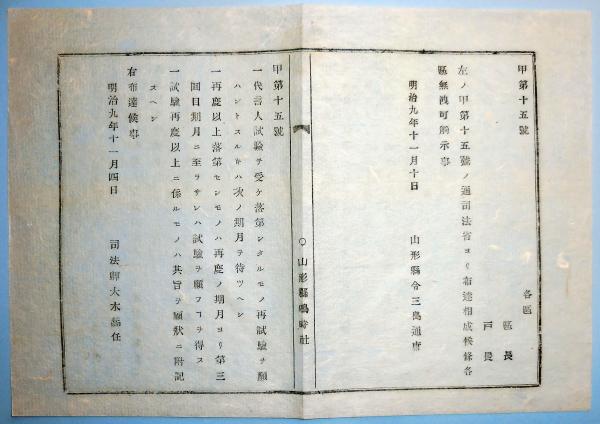 甲第十五號
各區
區長
戸長
左ノ甲第十五號ノ通司法省ヨリ布達相成候條各
區無洩可觸示事
明治九年十一月十日
山形縣令三島通庸
○山形縣鳴時社
甲第十五號
一代言人試驗ヲ受ケ落第シタルモノ再試驗ヲ願
ハントスルキハ次ノ期月ヲ待ツヘシ
一再度以上落第セシモノハ再度ノ期月ヨリ第三
回目期月ニ至ラサレハ試驗ヲ願フコヲ得ス
一試驗再度以上ニ係ルモノハ其旨ヲ願狀ニ附記
スヘシ
右布達候事
明治九年十一月四日
司法卿大木喬任